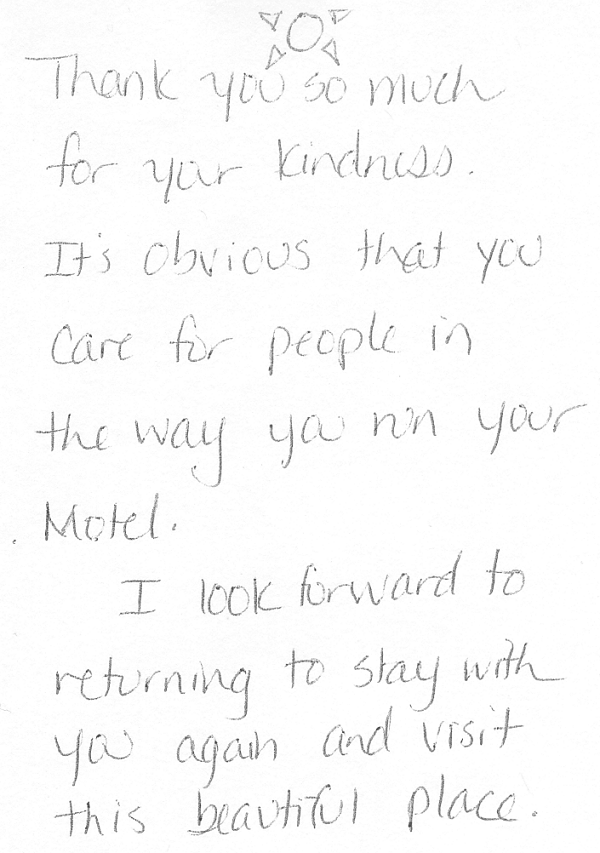 Thank you so much
for your kindness.
It's obvious that you
care for people in
the way you run your
Motel.
I look forward to
returning to stay with
you again and visit
this beautiful place.